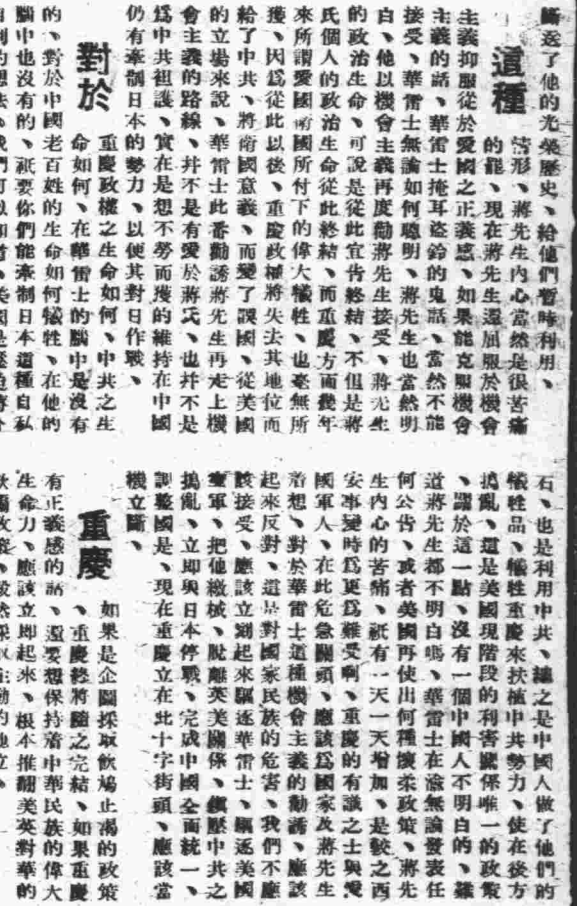 斷送了他的光榮歷史、給他們暫時利用、
這種
情形、蔣先生內心當然是很苦痛
的罷、現在蔣先生還屈服於機會
主義抑服從於愛國之正義感、如果能克服機會
主義的話、華雷士掩耳盜鈴的鬼話、當然不能
接受、華雷士無論如何聰明、蔣先生也當然明
白、他以機會主義再度勸蔣先生接受、蔣先生
的政治生命、可說是從此宣告終結、不但是蔣
氏個人的政治生命從此終結、而重慶方面幾年
來所謂愛國衛國所付下的偉大犧牲、也毫無所
獲、因爲從此以後、重慶政權將失去其地位而
給了中共、將衛國意義、而變了誤國、從美國
的立場來說、華雷士此番勸誘蔣先生再走上機
會主義的路線、幷不是有愛於蔣氏、也幷不是
爲中共袒護、實在是想不勞而獲的維持在中國
仍有牽制日本的勢力、以便其對日作戰、
對於
重慶政權之生命如何、中共之生
命如何、在華雷士的腦中是沒有
的、對於中國老百姓的生命如何犧牲、在他的
腦中也沒有的、祇要你們能牽制日本這種自私
石、也是利用中共、總之是中國人做了他們的
犧牲品、犧牲重慶來扶植中共勢力、使在後方
搗亂、這是美國現階段的利害關係唯一的政策
、關於這一點、沒有一個中國人不明白的、難
道蔣先生都不明白嗎、華雷士在渝無論發表任
何公告、或者美國再使出何種懷柔政策、蔣先
生內心的苦痛、祇有一天一天增加、是較之西
安事變時爲更爲難受啊、重慶的有識之士與愛
國軍人、在此危急關頭、應該爲國家及蔣先生
着想、對於華雷士這種機會主義的勸誘、應該
起來反對、這是對國家民族的危害、我們不應
該接受、應該立刻起來驅逐華雷士、驅逐美國
空軍、把他繳械、脫離英美關係、鎭壓中共之
搗亂、立即與日本停戰、完成中國全面統一、
調整國是、現在重慶立在此十字街頭、應該當
機立斷、
重慶
如果是企圖採取飮鴆止渴的政策
、重慶終將隨之完結、如果重慶
有正義感的話、還要想保持着中華民族的偉大
生命力、應該立即起來、根本推翻美英對華的